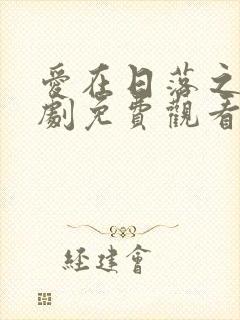 愛在日落之
劇免費觀看
經建會